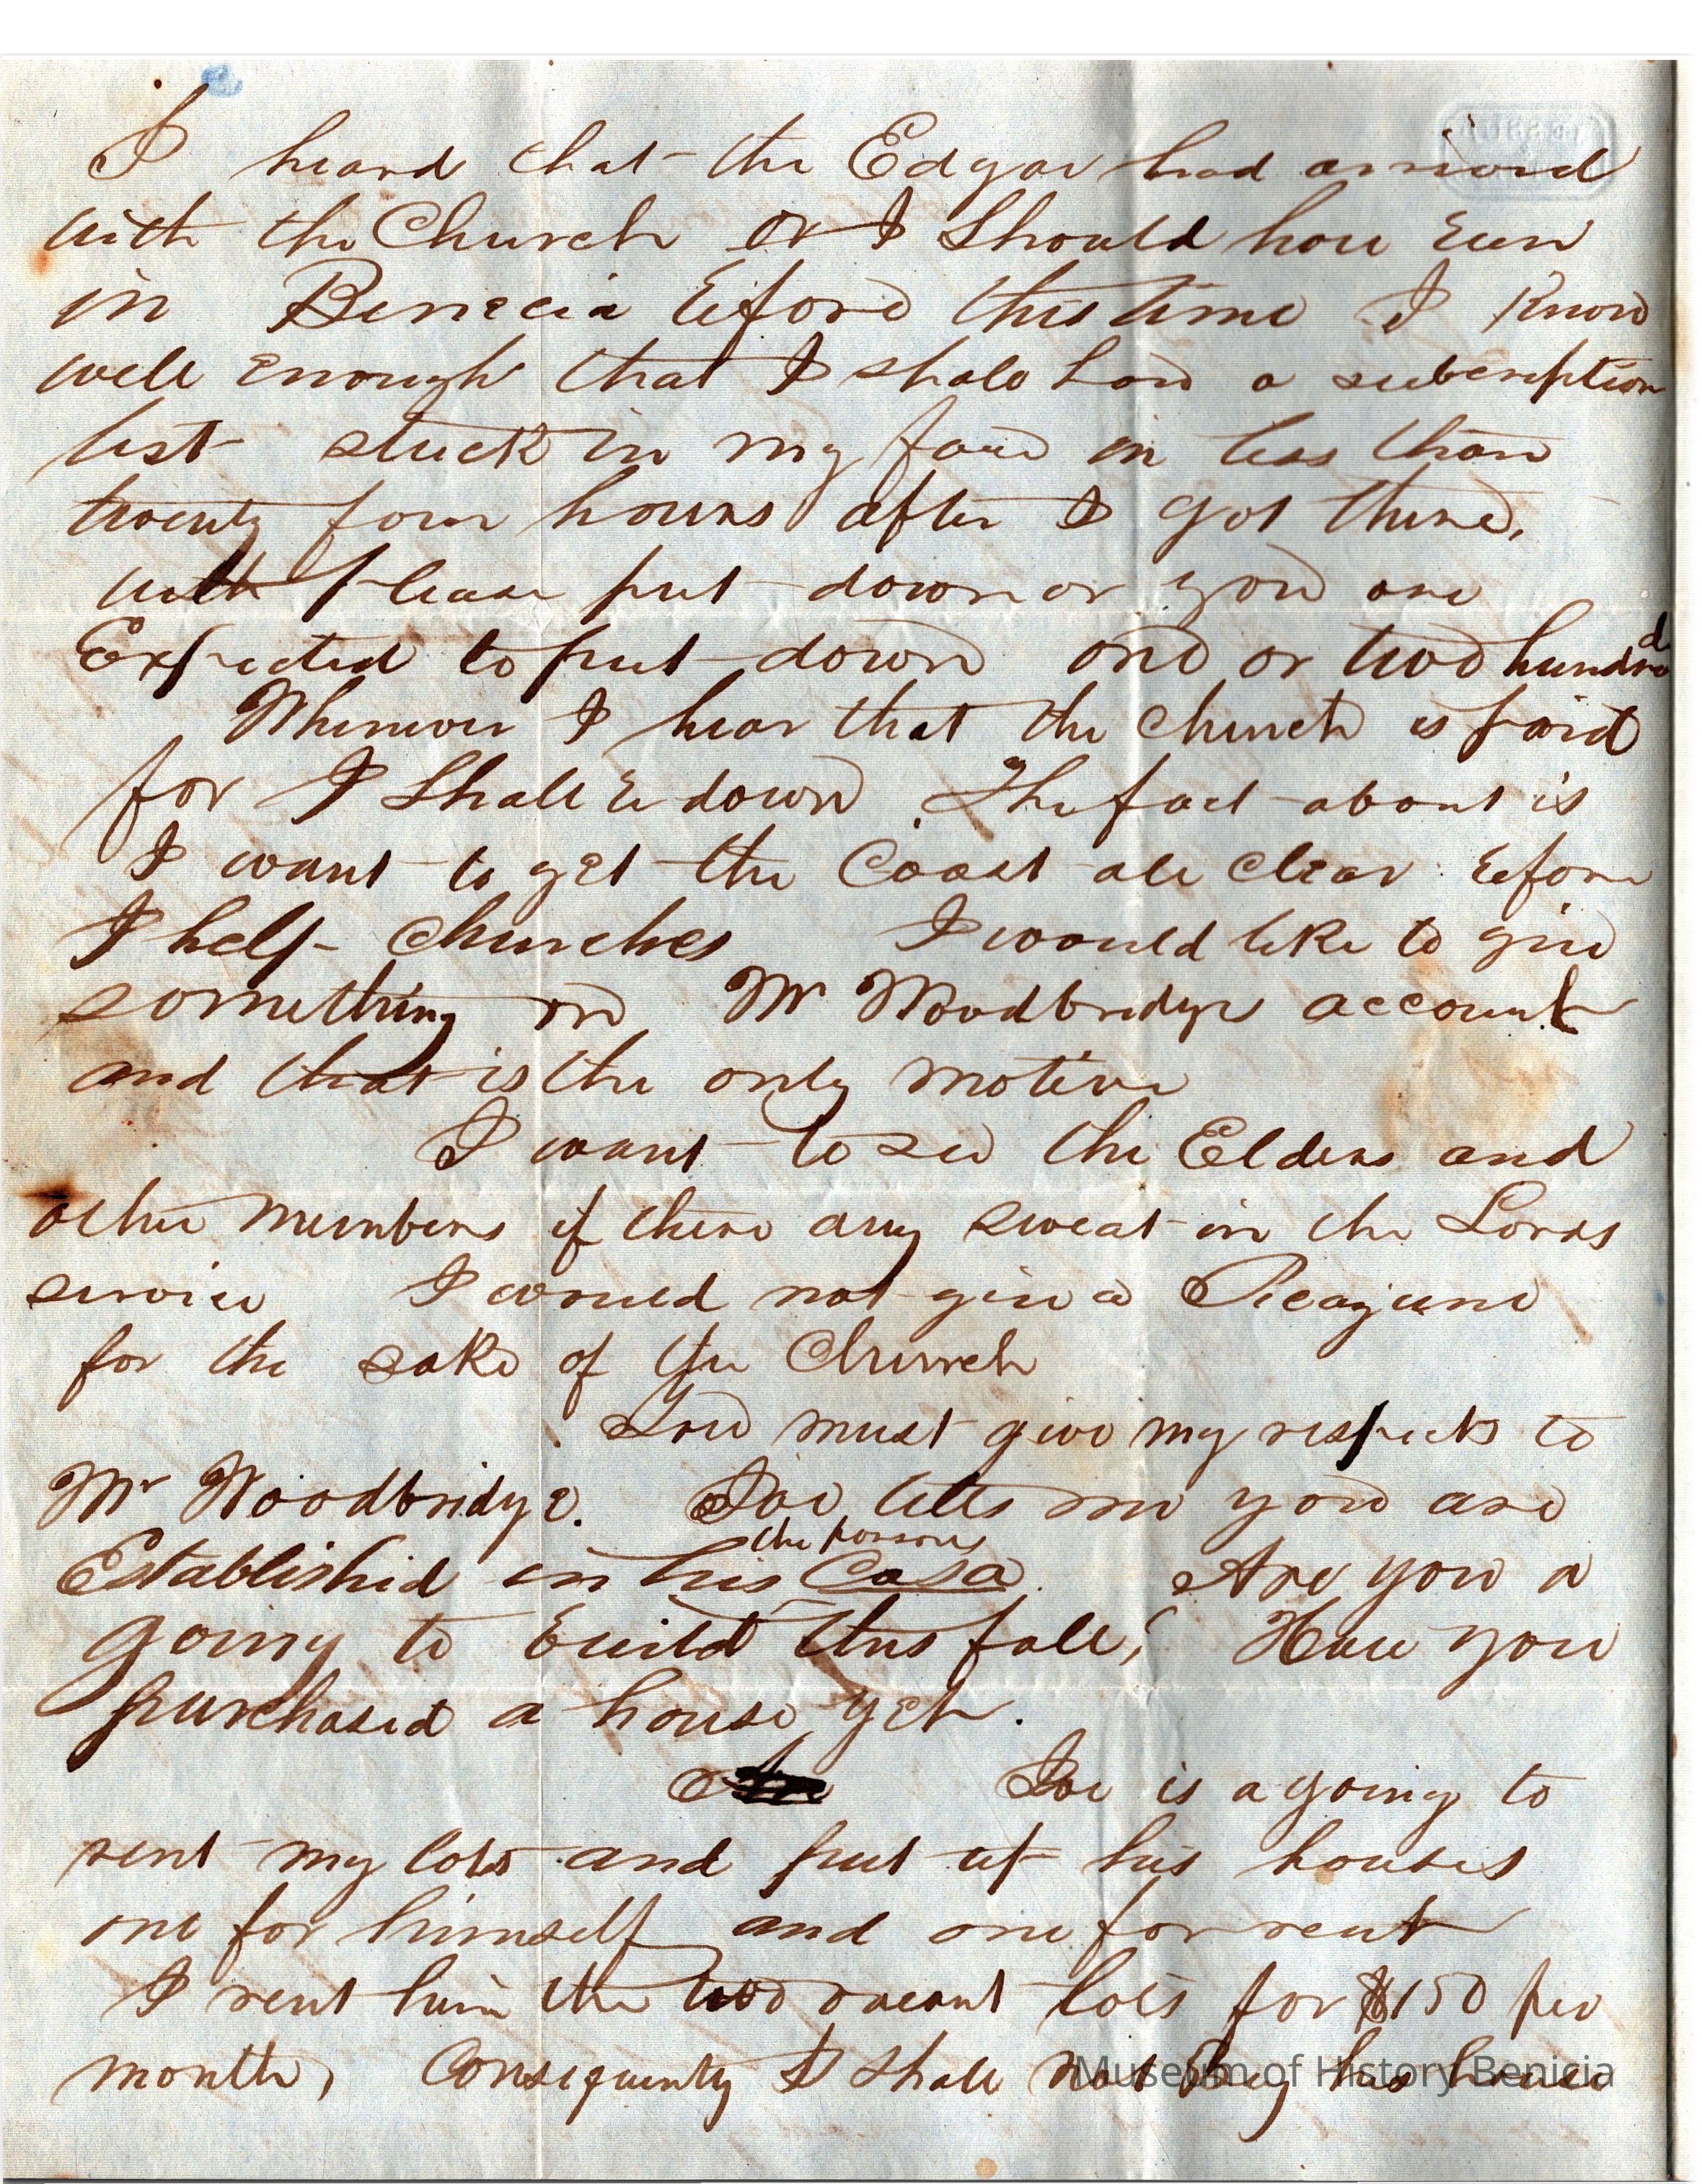 I heard that the Edgar had arrived
with the Church or I Should have been
in Benicia before this time I Know
well enough that I shall have a subscription
list stuck in my face in less than
twenty four hours after I got there,
with Please put down or you are
Expected to put down one or two hundred
Whenever I hear that the Church is paid
for I Shall be down The fact about is
I want to get the Coast all clear before
I help churches I would like to give
something on Mr Woodbridges account
and that is the only motive
I want to see the Elders and
other members if there any sweat in the Lords
service I would not give a Picayune
for the sake of the Church
You must give my respects to
Mr Woodbridge. Joe tells me you are
the parsons
Established in his Casa. Are you a
going to build this fall? Have you
purchased a house yet.
Joe is a going to
rent my lots and put up his houses
one for himself and one for rent
I rent him the two vacant lots for $150 per
month, Consequently I shall not Buy his house
Museum of History Benicia